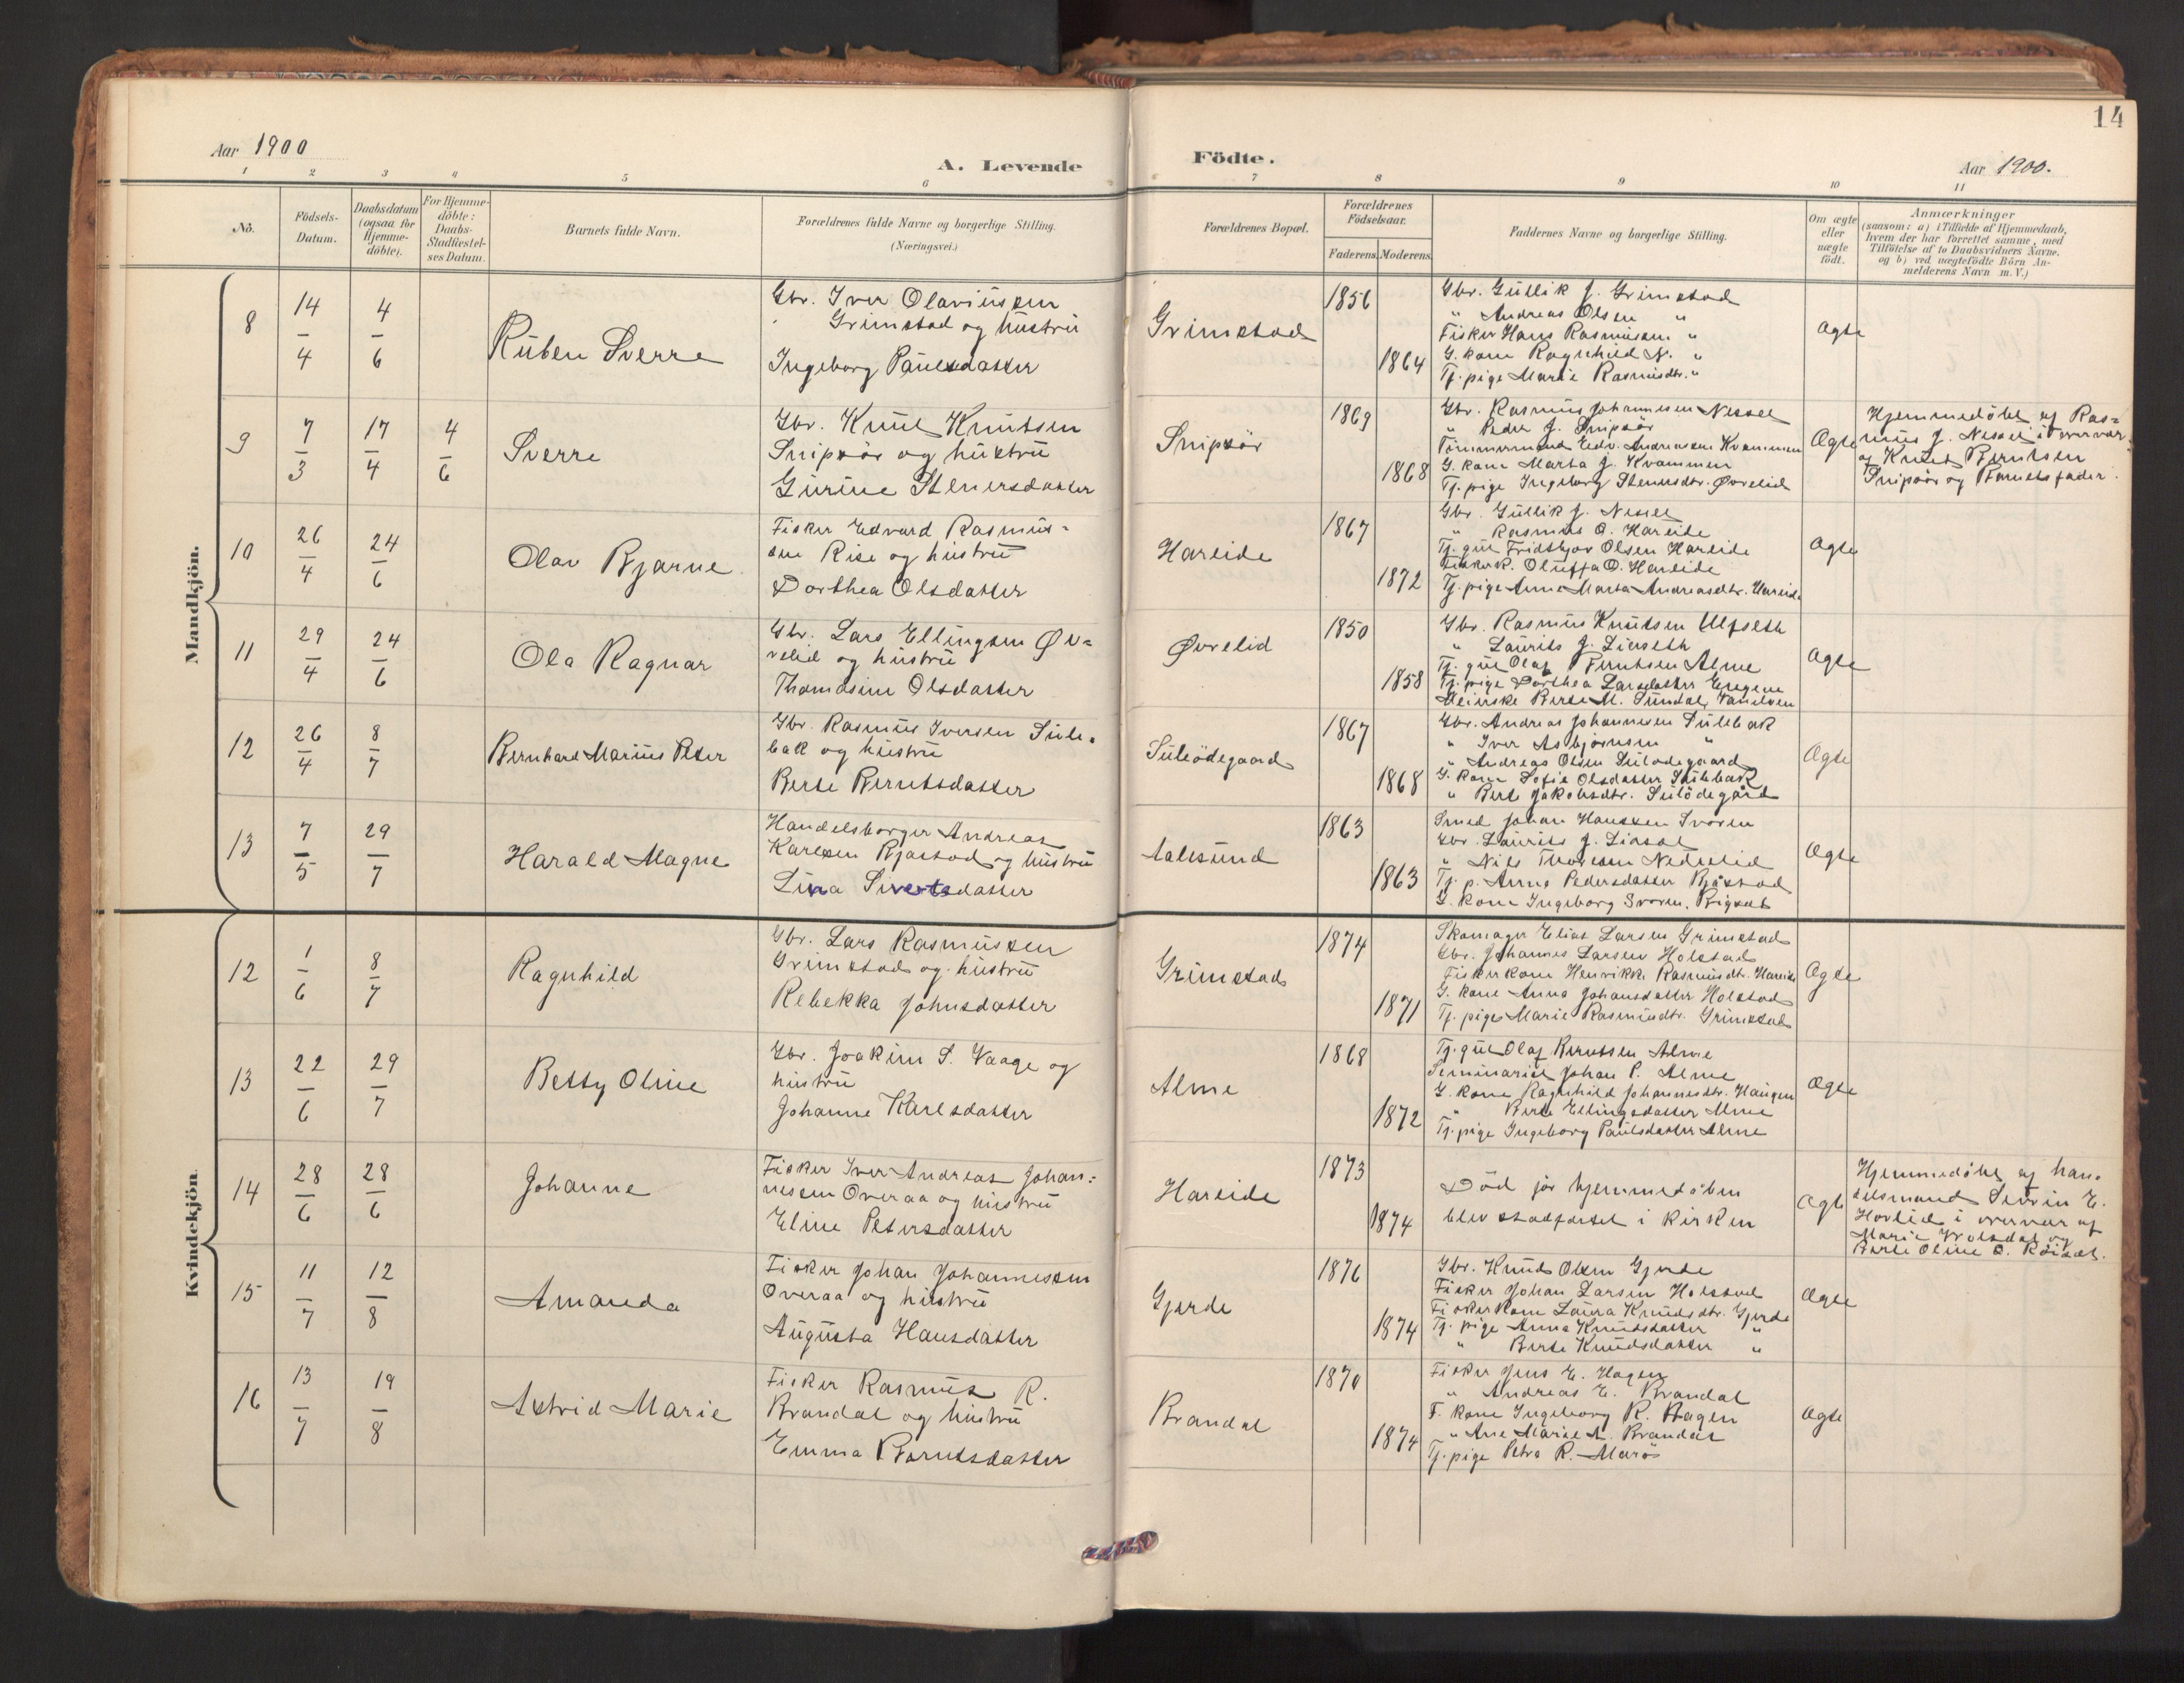 Aar 1900
A. Levende
Födte.
Aar 1900.
14
1 2 3 4 5 6 7 8 9 10 11
No.
Födsels-
Datum.
Daabsdatum
(ogsaa for
Hjemme-
döbte).
For Hjemme-
döbte:
Daabs-
Stadfæstel-
ses Datum.
Barnets fulde Navn.
Forældrenes fulde Navne og borgerlige Stilling.
(Næringsvei.)
Forældrenes Bopæl.
Forældrenes
Födselsaar.
Faderens. Moderens.
Faddernes Navne og borgerlige Stilling.
Om ægte
eller
uægte
födt.
Anmærkninger
(saasom: a) i Tilfælde af Hjemmedaab,
hvem der har forrettet samme, med
Tilföielse af to Daabsvidners Navne,
og b) ved uægtefödte Börn An-
melderens Navn m. V.)
Mandkjön.
8
14/4
4/6
Ruben Sverre
Gbr. Iver Olaviussen
Grimstad og hustru
Ingeborg Paulsdatter
Grimstad
1856
1864
Gbr. Gullik J. Grimstad
" Andreas Olsen "
Fisker Hans Rasmussen "
G. kone Ragnhild N. "
Tj. pige Marie Rasmusdtr. "
Ægte
9
7/3
17/4
4/6
Sverre
Gbr. Knut Knutsen
Snipsör og hustru
Gurine Stenersdatter
Snipsör
1869
1868
Gbr. Rasmus Johannesen Nesset
" Peder J. Snipsör
Tømmermand Edv. Andreassen Kvammen
G. kone Marta J. Kvammen
Tj. pige Ingeborg Stenersdtr. Øvrelid
Ægte
Hjemmedöbt af Ras-
mus J. Nesset i overvær
af Knut Berntsen
Snipsör og Barnets fader.
10
26/4
24/6
Olav Bjarne
Fisker Edvard Rasmus-
sen Rise og hustru
Dorthea Olsdatter
Hareide
1867
1872
Gbr. Gullik J. Nesset
" Rasmus O. Hareide
Tj. gut Fridthjov Olsen Hareide
Fiskerk. Oluffa O. Hareide
Tj. pige Anne Marta Andreasdtr. Hareide
Ægte
11
29/4
24/6
Ola Ragnar
Gbr. Lars Ellingsen Øv-
relid og hustru
Thomasine Olsdatter
Øvrelid
1850
1858
Gbr. Rasmus Knutsen Ulfseth
" Laurits J. Liaseth
Tj. gut Olaf Berntsen Alme
Tj. pige Dorthea Larsdatter
Berte M. Sundal, Vanelven
Ægte
12
26/4
8/7
Bernhard Marius Peter
Gbr. Rasmus Iversen Sule-
bak og hustru
Berte Berntsdatter
Suleödegaard
1867
1868
Gbr. Andreas Johannesen Sulebak
" Iver Asbjørnsen "
" Andreas Olsen Suleödegaard
G. kone Sofie Olsdatter Sulebak
" Berte Jakobsdtr. Suleödegård
Ægte
13
7/5
29/7
Harald Magne
Handelsborger Andreas
Karlsen Bjåstad og hustru
Lina Sivertsdatter
Aalesund
1863
1863
Smed Johan Hanssen Svoren
Gbr. Laurits J. Liaset
" Nils Thoresen Nedrelid
Tj. p. Anne Pedersdatter Bjåstad
G. kone Ingeborg Svoren, Brigsat
Ægte
Kvindekjön.
12
1/6
8/7
Ragnhild
Gbr. Lars Rasmussen
Grimstad og hustru
Rebekka Johnsdatter
Grimstad
1874
1871
Skomager Elias Larsen Grimstad
Gbr. Johannes Larsen Holstad
Fiskerkone Henrikke Rasmusdtr. Hareide
G. kone Anna Johansdatter Holstad
Tj. pige Marie Rasmusdtr. Grimstad
Ægte
13
22/6
29/7
Betty Oline
Gbr. Joakim S. Vaage og
hustru
Johanne Karlsdatter
Alme
1868
1872
Tj. gut Olaf Berntsen Alme
Seminarist Johan P. Alme
G. kone Ragnhild Johannesdtr. Haugen
" Berte Ellingsdatter Alme
Tj. pige Ingeborg Paulsdatter Alme
Ægte
14
28/6
28/6
Johanne
Fisker Iver Andreas Johan-
nessen Overaa og hustru
Eline Petersdatter
Hareide
1873
1874
Död för hjemmedåben
blev stadfæstet i kirken
Ægte
Hjemmedöbt af han-
delsmand Sevrin E.
Hovlid i overvær af
Marie Wolsdal og
Berte Oline O. Röiset.
15
11/7
12/8
Amanda
Fisker Johan Johannessen
Overaa og hustru
Augusta Hansdatter
Gjerde
1876
1874
Gbr. Knud Olsen Gjerde
Fisker Johan Larsen Holstad
Fiskerkone Laura Knudsdtr. Gjerde
Tj. pige Anna Knudsdatter "
" Berte Knudsdatter "
Ægte
16
13/7
19/8
Astrid Marie
Fisker Rasmus R.
Brandal og hustru
Emma Berntsdatter
Brandal
1870
1874
Fisker Jens E. Hagen
" Andreas E. Brandal
F. kone Ingeborg R. Hagen
" Ane Marie A. Brandal
Tj. pige Petra R. Marö
Ægte